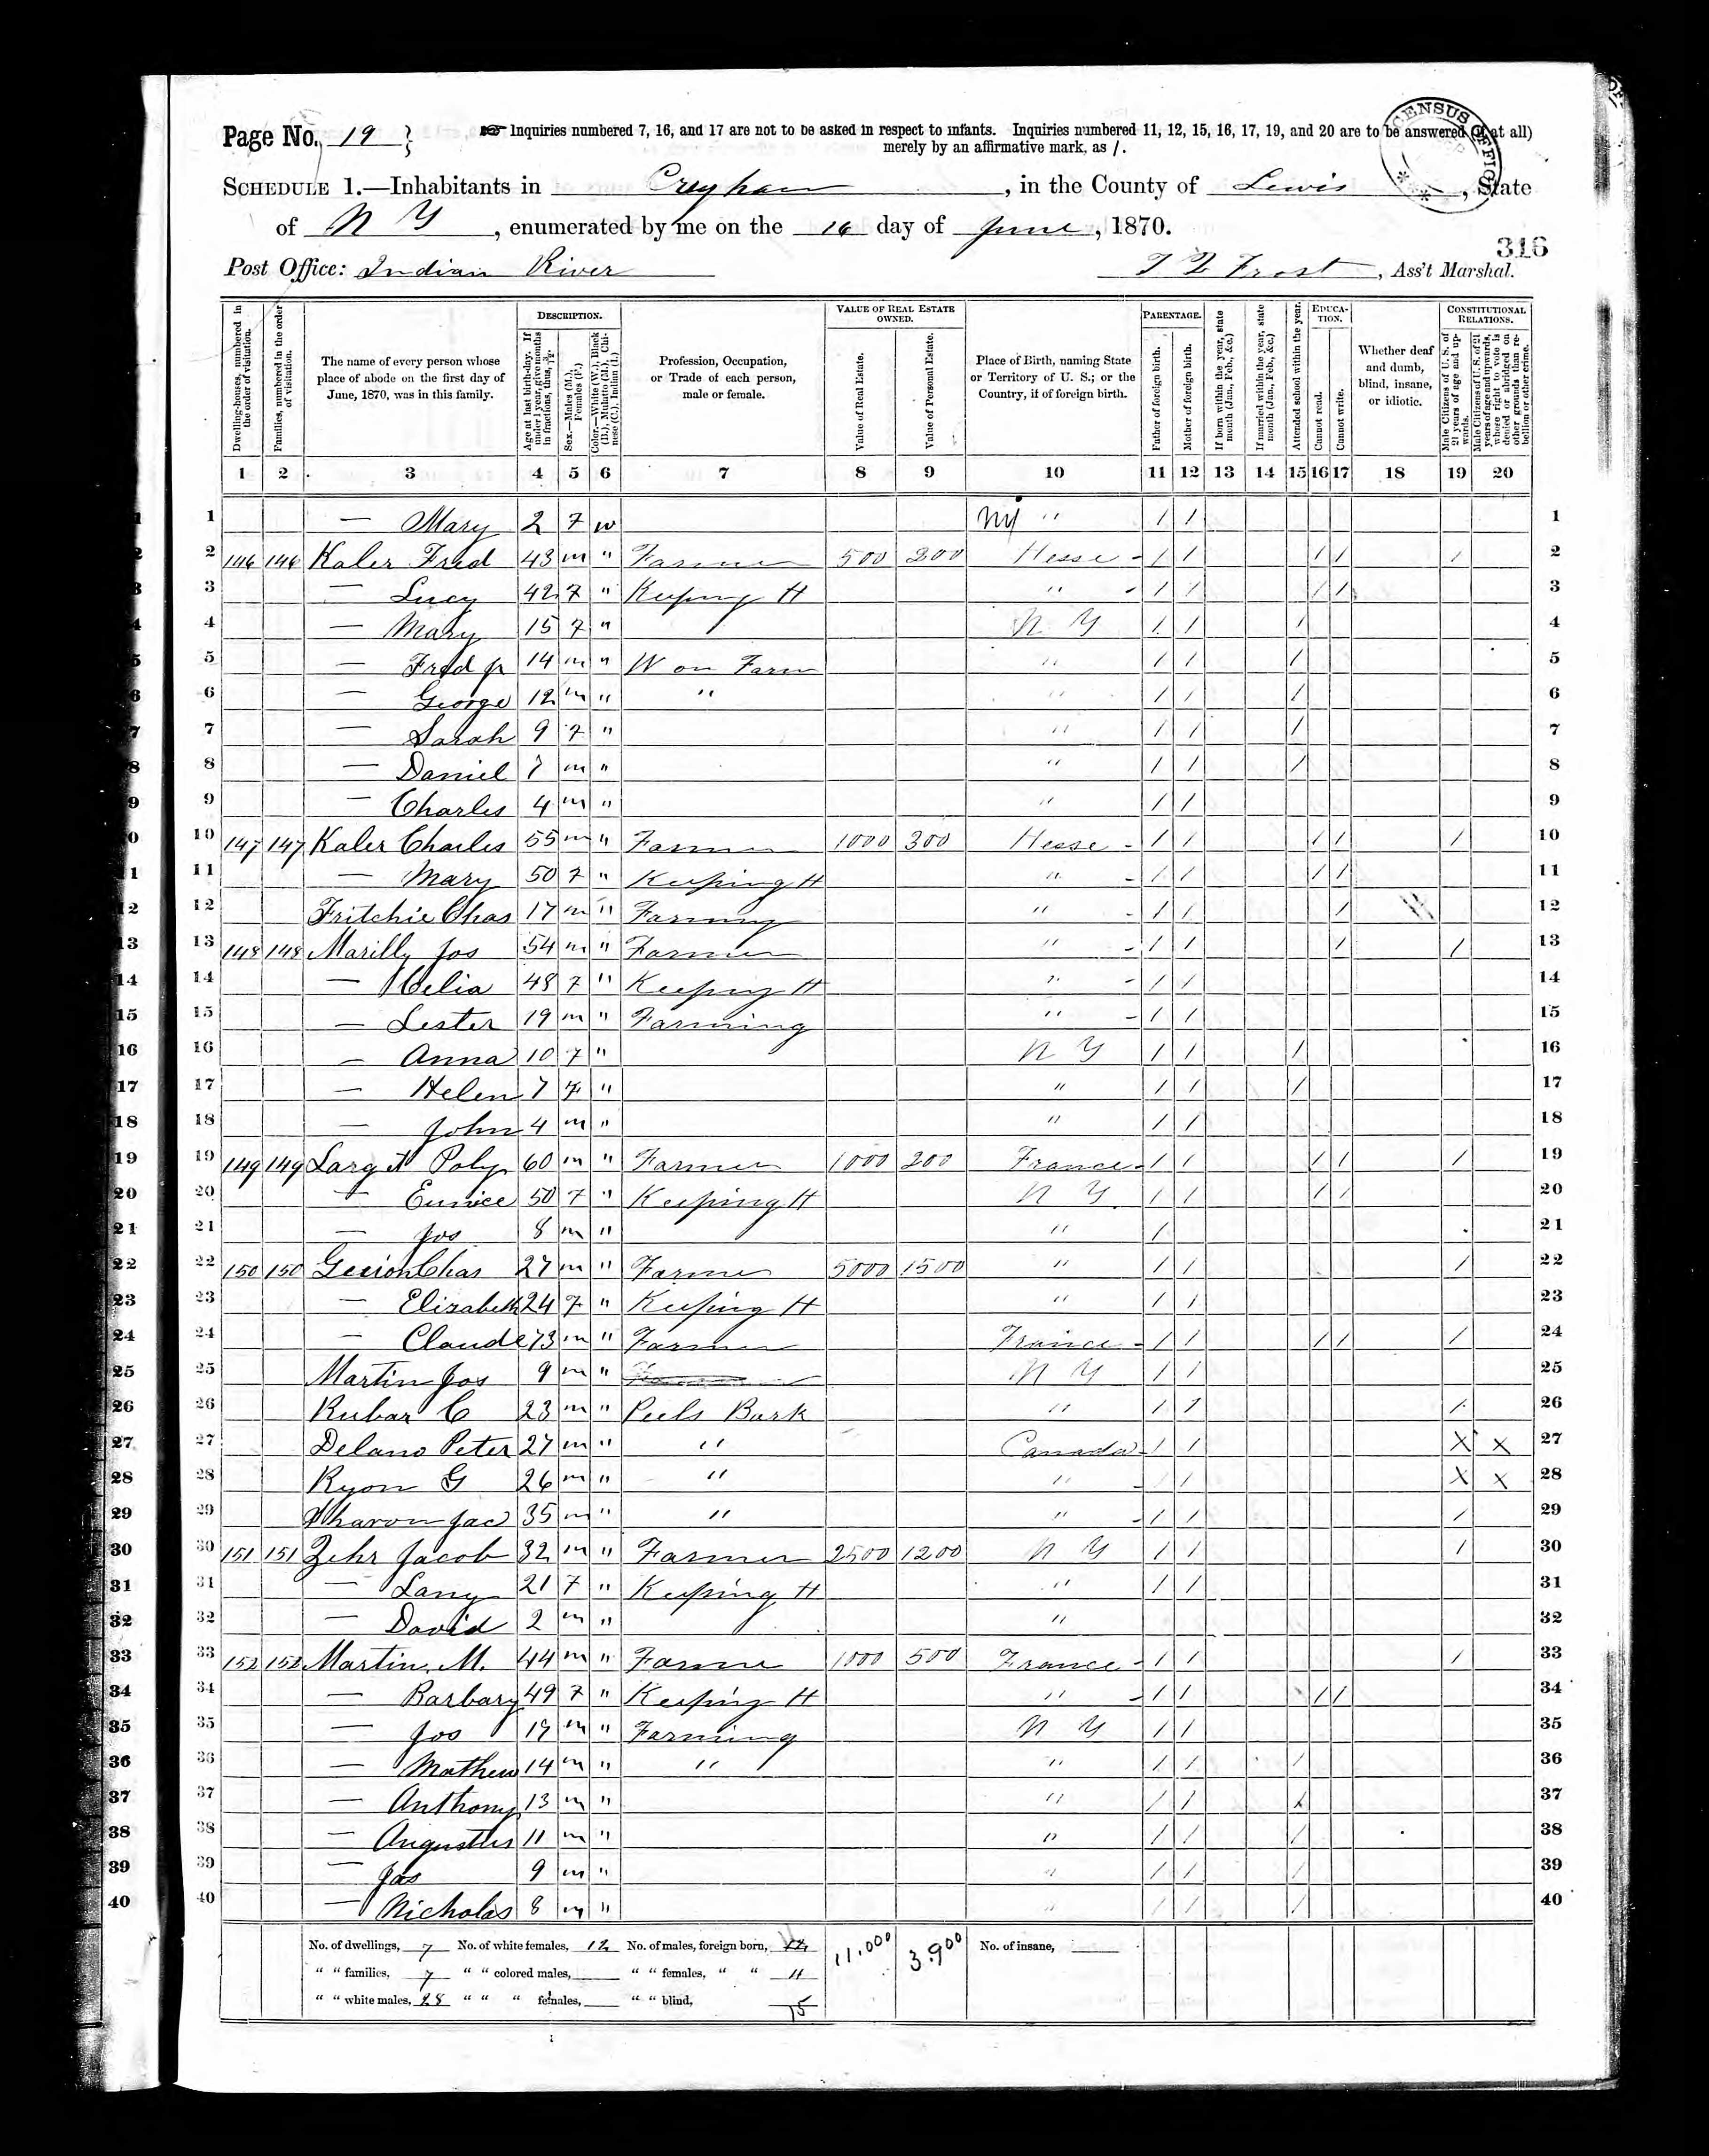 Page No. 19
Inquiries numbered 7, 16, and 17 are not to be asked in respect to infants. Inquiries numbered 11, 12, 15, 16, 17, 19, and 20 are to be answered (if at all)
merely by an affirmative mark, as /.
CENSUS OFFICE
SCHEDULE 1.—Inhabitants in Croghan, in the County of Lewis, State
of N Y, enumerated by me on the 16 day of June, 1870.
316
Post Office: Indian River
Frost, Ass't Marshal.
Dwelling-houses, numbered in the order of visitation.
Families, numbered in the order of visitation.
The name of every person whose place of abode on the first day of June, 1870, was in this family.
DESCRIPTION.
Age at last birth-day. If under 1 year, give months in fractions, thus, 3/12.
Sex.—Males (M.), Females (F.)
Color.—White (W.), Black (B.), Mulatto (M.), Chinese (C.), Indian (I.)
Profession, Occupation, or Trade of each person, male or female.
VALUE OF REAL ESTATE OWNED.
Value of Real Estate.
Value of Personal Estate.
Place of Birth, naming State or Territory of U. S.; or the Country, if of foreign birth.
PARENTAGE.
Father of foreign birth.
Mother of foreign birth.
If born within the year, state month (Jan., Feb., &c.)
If married within the year, state month (Jan., Feb., &c.)
Attended school within the year.
EDUCATION.
Cannot read.
Cannot write.
Whether deaf and dumb, blind, insane, or idiotic.
CONSTITUTIONAL RELATIONS.
Male Citizens of U. S. of 21 years of age and upwards.
Male Citizens of U. S. of 21 years of age and upwards, whose right to vote is denied or abridged on other grounds than rebellion or other crime.
1 2 3 4 5 6 7 8 9 10 11 12 13 14 15 16 17 18 19 20
1 — Mary 2 F W NY " / / 1
2 146 146 Kaler Fred 43 m " Farmer 500 200 Hesse - / / / / / 2
3 — Lucy 42 F " Keeping H " - / / / / 3
4 — Mary 15 F " N Y / / / 4
5 — Fred Jr 14 m " W on Farm " / / / 5
6 — George 12 m " " " / / / 6
7 — Sarah 9 F " " / / / 7
8 — Daniel 7 m " " / / / 8
9 — Charles 4 m " " / / 9
10 147 147 Kaler Charles 55 m " Farmer 1000 300 Hesse - / / / / / 10
11 — Mary 50 F " Keeping H " - / / / / 11
12 Fritchie Chas 17 m " Farming " - / / / 12
13 148 148 Marilly Jos 54 m " Farmer " - / / / / 13
14 — Celia 48 F " Keeping H " - / / 14
15 — Lester 19 m " Farming " - / / 15
16 — Anna 10 F " N Y / / / 16
17 — Helen 7 F " " / / / 17
18 — John 4 m " " / / 18
19 149 149 Larget Poly 60 m " Farmer 1000 200 France - / / / / / 19
20 — Eunice 50 F " Keeping H N Y / / / / 20
21 — Jos 8 m " " / 21
22 150 150 Chas 27 m " Farmer 5000 1500 " / / / 22
23 — Elizabeth 24 F " Keeping H " / / 23
24 — Claude 73 m " Farmer France - / / / / / 24
25 Martin Jos 9 m " N Y / / 25
26 Rubar C 23 m " Peels Bark " / / / 26
27 Delano Peter 27 m " " Canada - / / X X 27
28 Ryon G 26 m " " " - / / X X 28
29 Jac 35 m " " " - / / / 29
30 151 151 Zehr Jacob 32 m " Farmer 2500 1200 N Y / / / 30
31 — Lany 21 F " Keeping H " / / 31
32 — David 2 m " " 32
33 152 152 Martin M. 44 m " Farme 1000 500 France - / / / 33
34 — Barbary 49 F " Keeping H " - / / / / 34
35 — Jos 17 m " Farming N Y / / 35
36 — Mathew 14 m " " " / / / 36
37 — Anthony 13 m " " / / / 37
38 — Augustus 11 m " " / / / 38
39 — Jas 9 m " " / / / 39
40 — Nicholas 8 m " " / / / 40
No. of dwellings, 7 No. of white females, 12 No. of males, foreign born, 11,000 3.900 No. of insane,
" " families, 7 " " colored males, " " females, " " 4
" " white males, 28 " " " females, " " blind, 15